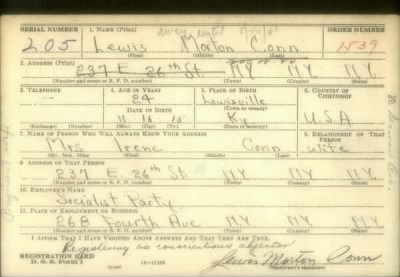 SERIAL NUMBER 1. NAME (Print) ORDER NUMBER
205 Lewis Morton Conn 1539
(First) (Middle) (Last)
2. ADDRESS (Print)
237 E. 26th St. NY NY
(Number and street or R. F. D. number) (Town) (County) (State)
3. TELEPHONE 4. AGE IN YEARS 5. PLACE OF BIRTH 6. COUNTRY OF CITIZENSHIP
24 Louisville
DATE OF BIRTH (Town or county)
11 16 15 Ky U.S.A
(Exchange) (Number) (Mo.) (Day) (Yr.) (State or country)
7. NAME OF PERSON WHO WILL ALWAYS KNOW YOUR ADDRESS 8. RELATIONSHIP OF THAT PERSON
Mrs Irene Conn wife
(Mr., Mrs., Miss) (First) (Middle) (Last)
9. ADDRESS OF THAT PERSON
237 E. 26th St. NY NY
(Number and street or R. F. D. number) (Town) (County) (State)
10. EMPLOYER'S NAME
Socialist Party
11. PLACE OF EMPLOYMENT OR BUSINESS
268 Fourth Ave NY NY
(Number and street or R. F. D. number) (Town) (County) (State)
I AFFIRM THAT I HAVE VERIFIED ABOVE ANSWERS AND THAT THEY ARE TRUE.
Registering as conscientious objector
REGISTRATION CARD
D. S. S. FORM 1 Lewis Morton Conn
(Registrant's signature)